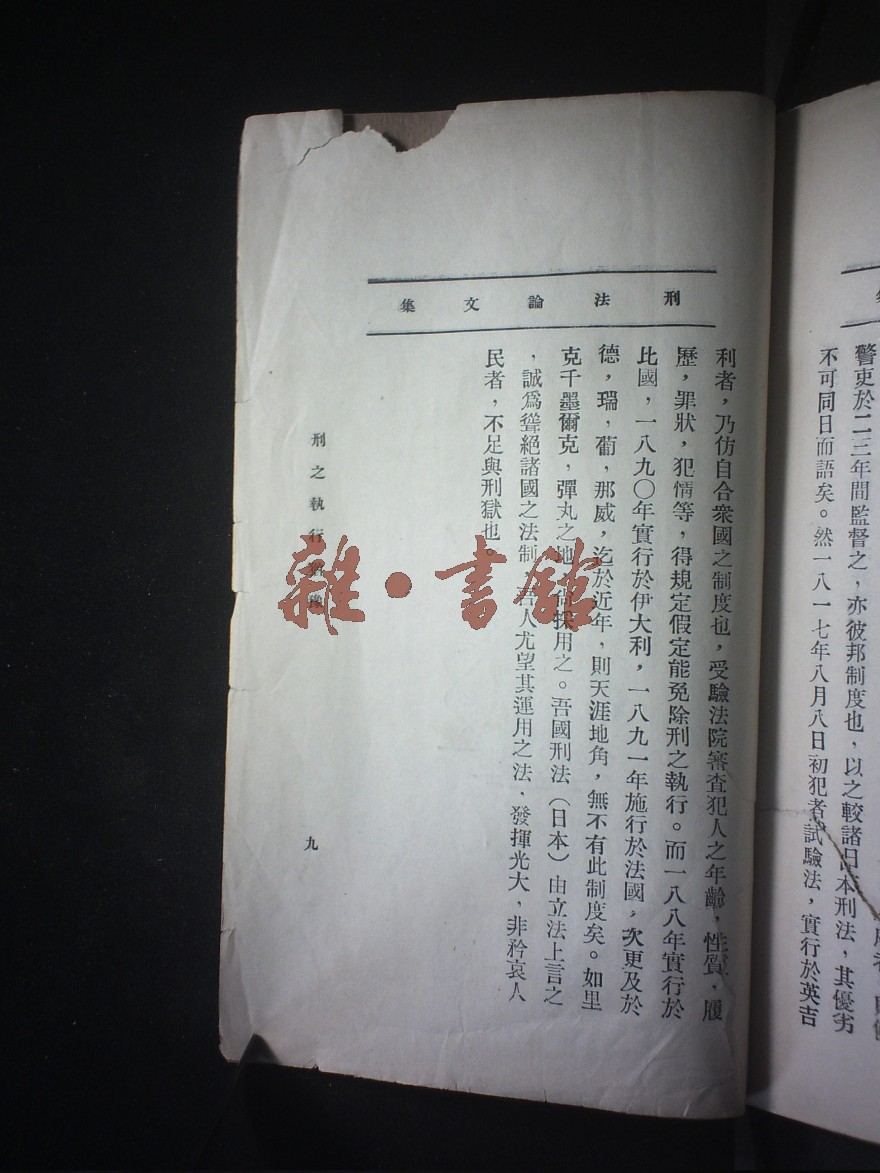 警吏於二三年間監督之，亦彼邦制度也，以之較諸日本刑法，其優劣
不可同日而語矣。然一八一七年八月八日初犯者試驗法，實行於英吉
刑法論文集
利者，乃仿自合衆國之制度也，受驗法院審査犯人之年齡，性質，履
歷，罪狀，犯情等，得規定假定能免除刑之執行。而一八八年實行於
比國，一八九〇年實行於伊大利，一八九一年施行於法國，次更及於
德，瑞，葡，那威，迄於近年，則天涯地角，無不有此制度矣。如里
克千墨爾克，彈丸之地，尚採用之。吾國刑法（日本）由立法上言之
，誠爲聳絕諸國之法制，吾人尤望其運用之法，發揮光大，非矜哀人
民者，不足與刑獄也。
刑之執行猶豫
九
雜·書館